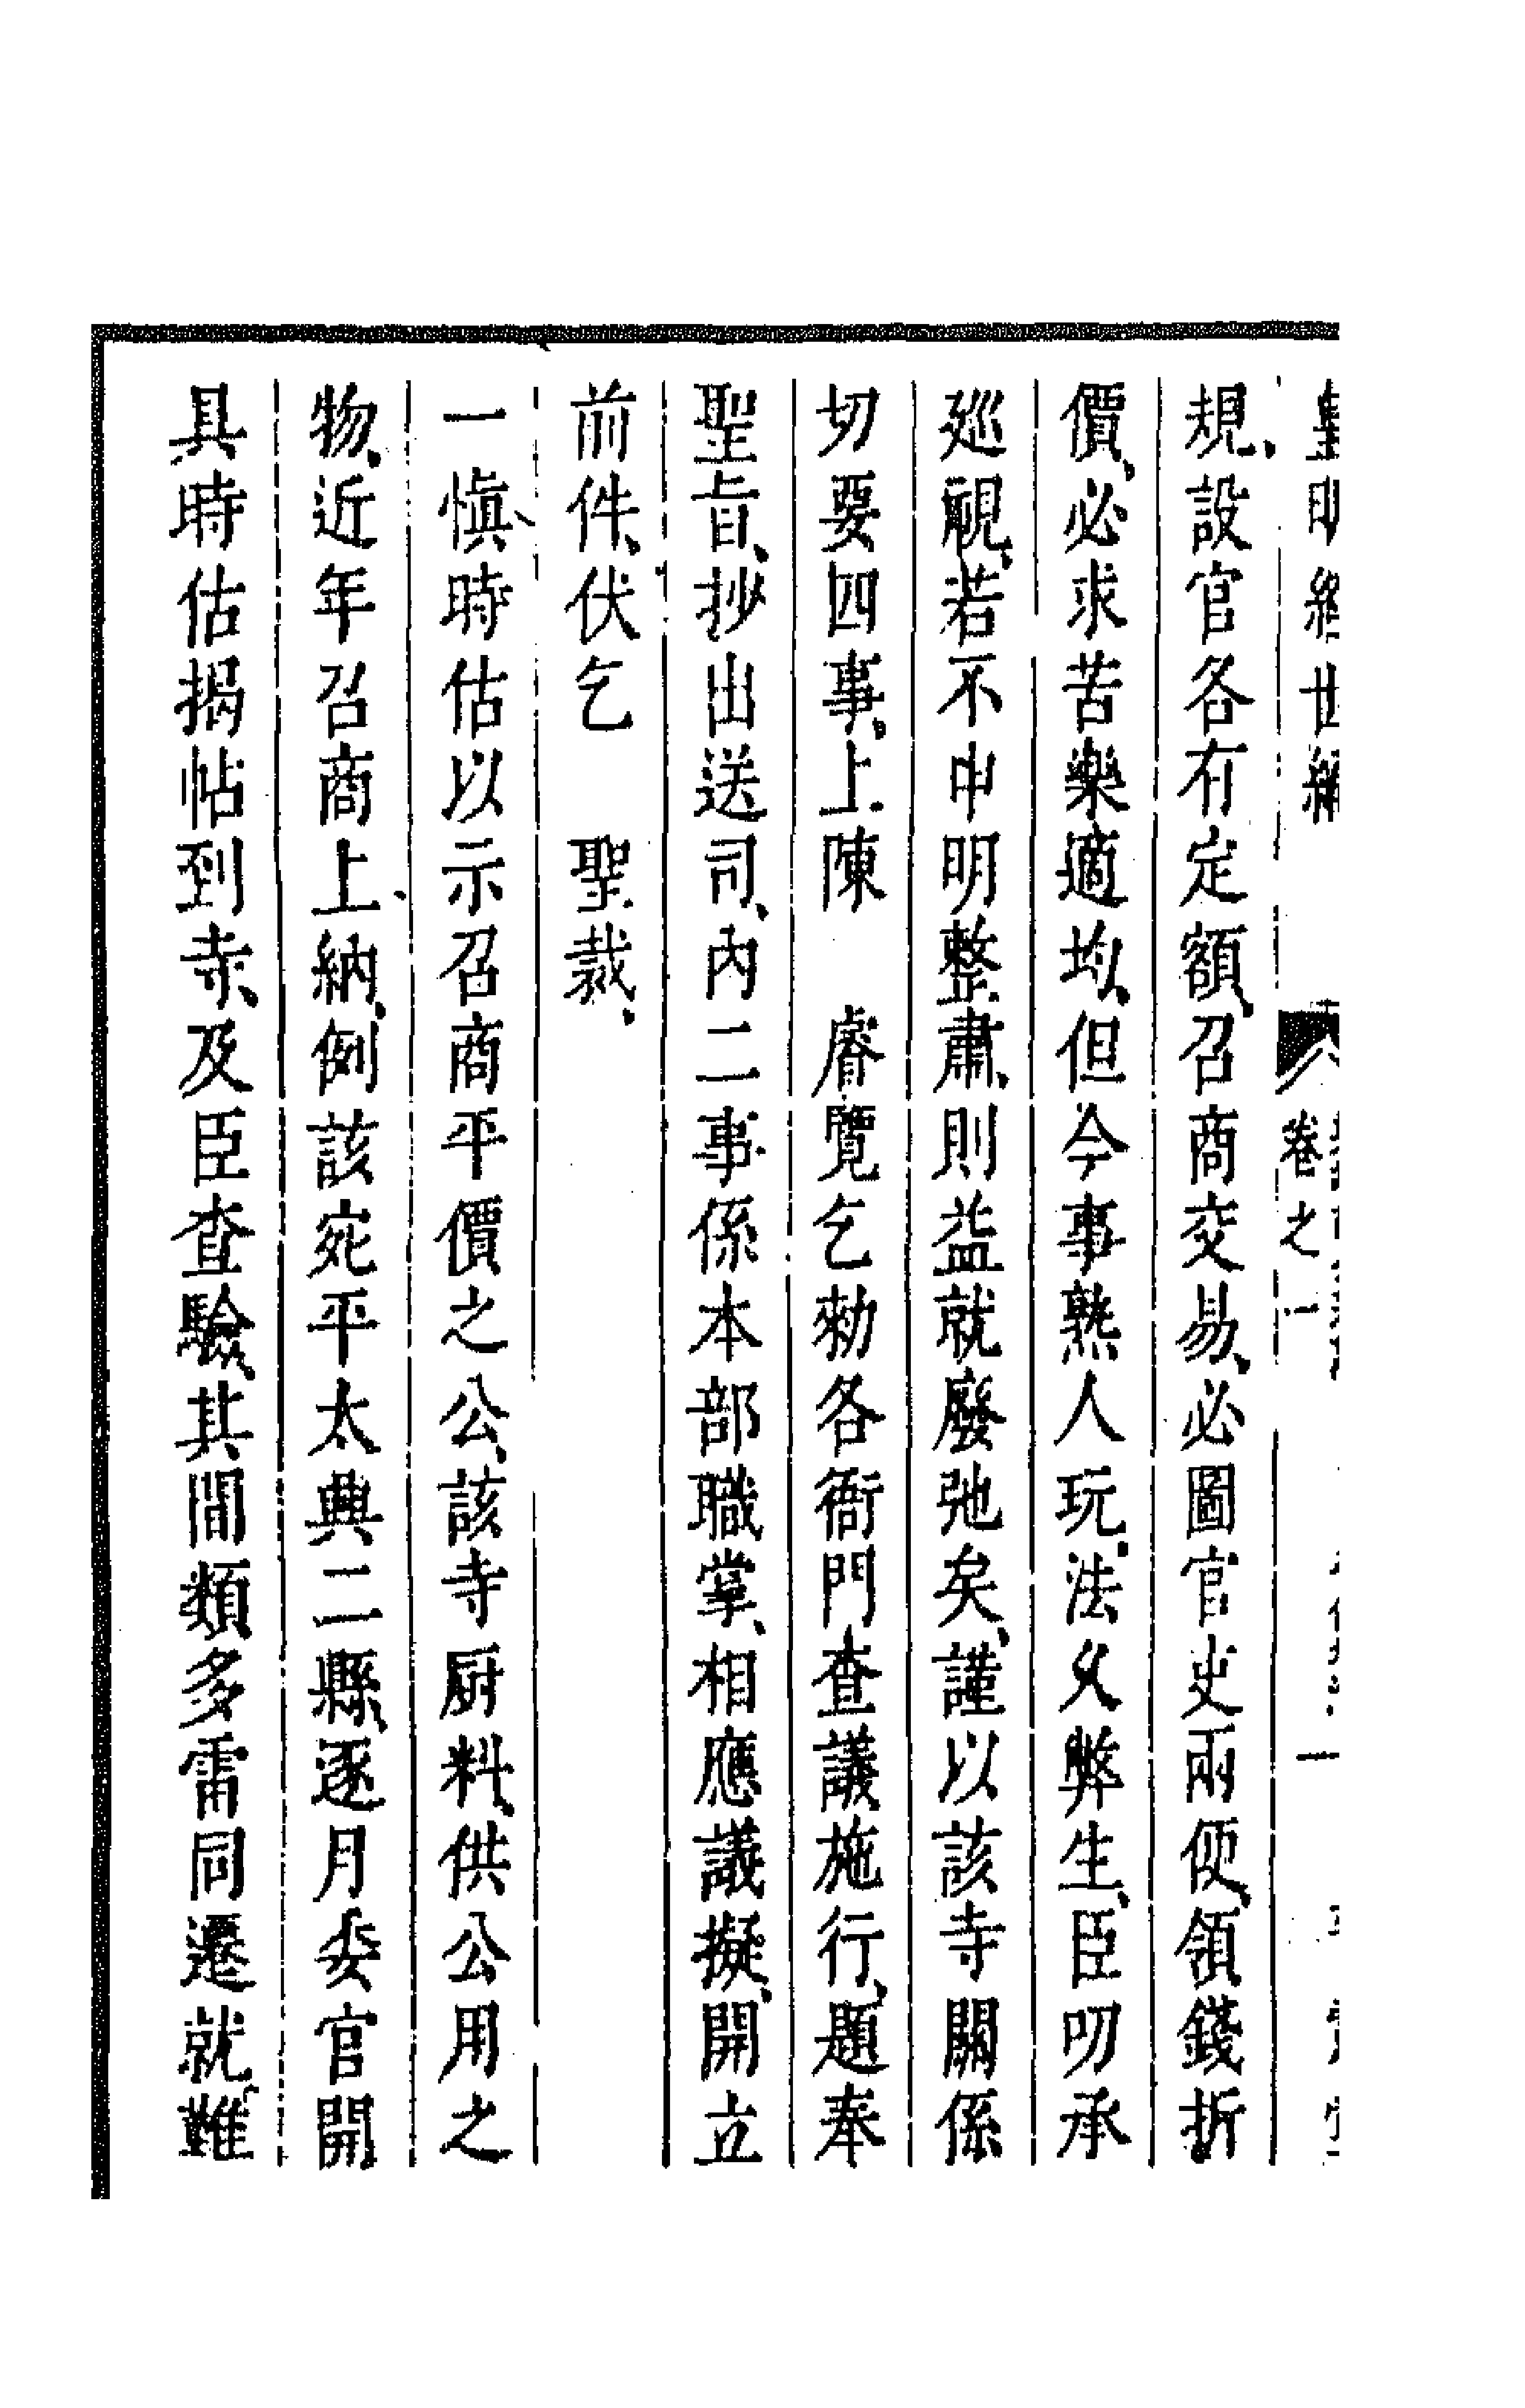 皇明經世編 卷之一
規、設官各有定額、召商交易、必圖官吏兩便、領錢折
價、必求苦樂適均、但今事熟人玩、法久弊生、臣叨承
廵視、若不申明整肅、則益就廢弛矣、謹以該寺關係
切要四事、上陳 睿覽乞勑各衙門查議施行、題奉
聖旨、抄出送司、內二事係本部職掌、相應議擬、開立
前件、伏乞 聖裁、
一慎時估以示召商平價之公、該寺厨料、供公用之
物、近年召商上納、例該宛平大興二縣、逐月委官開
具時估揭帖到寺、及臣查驗、其間類多雷同遷就、難